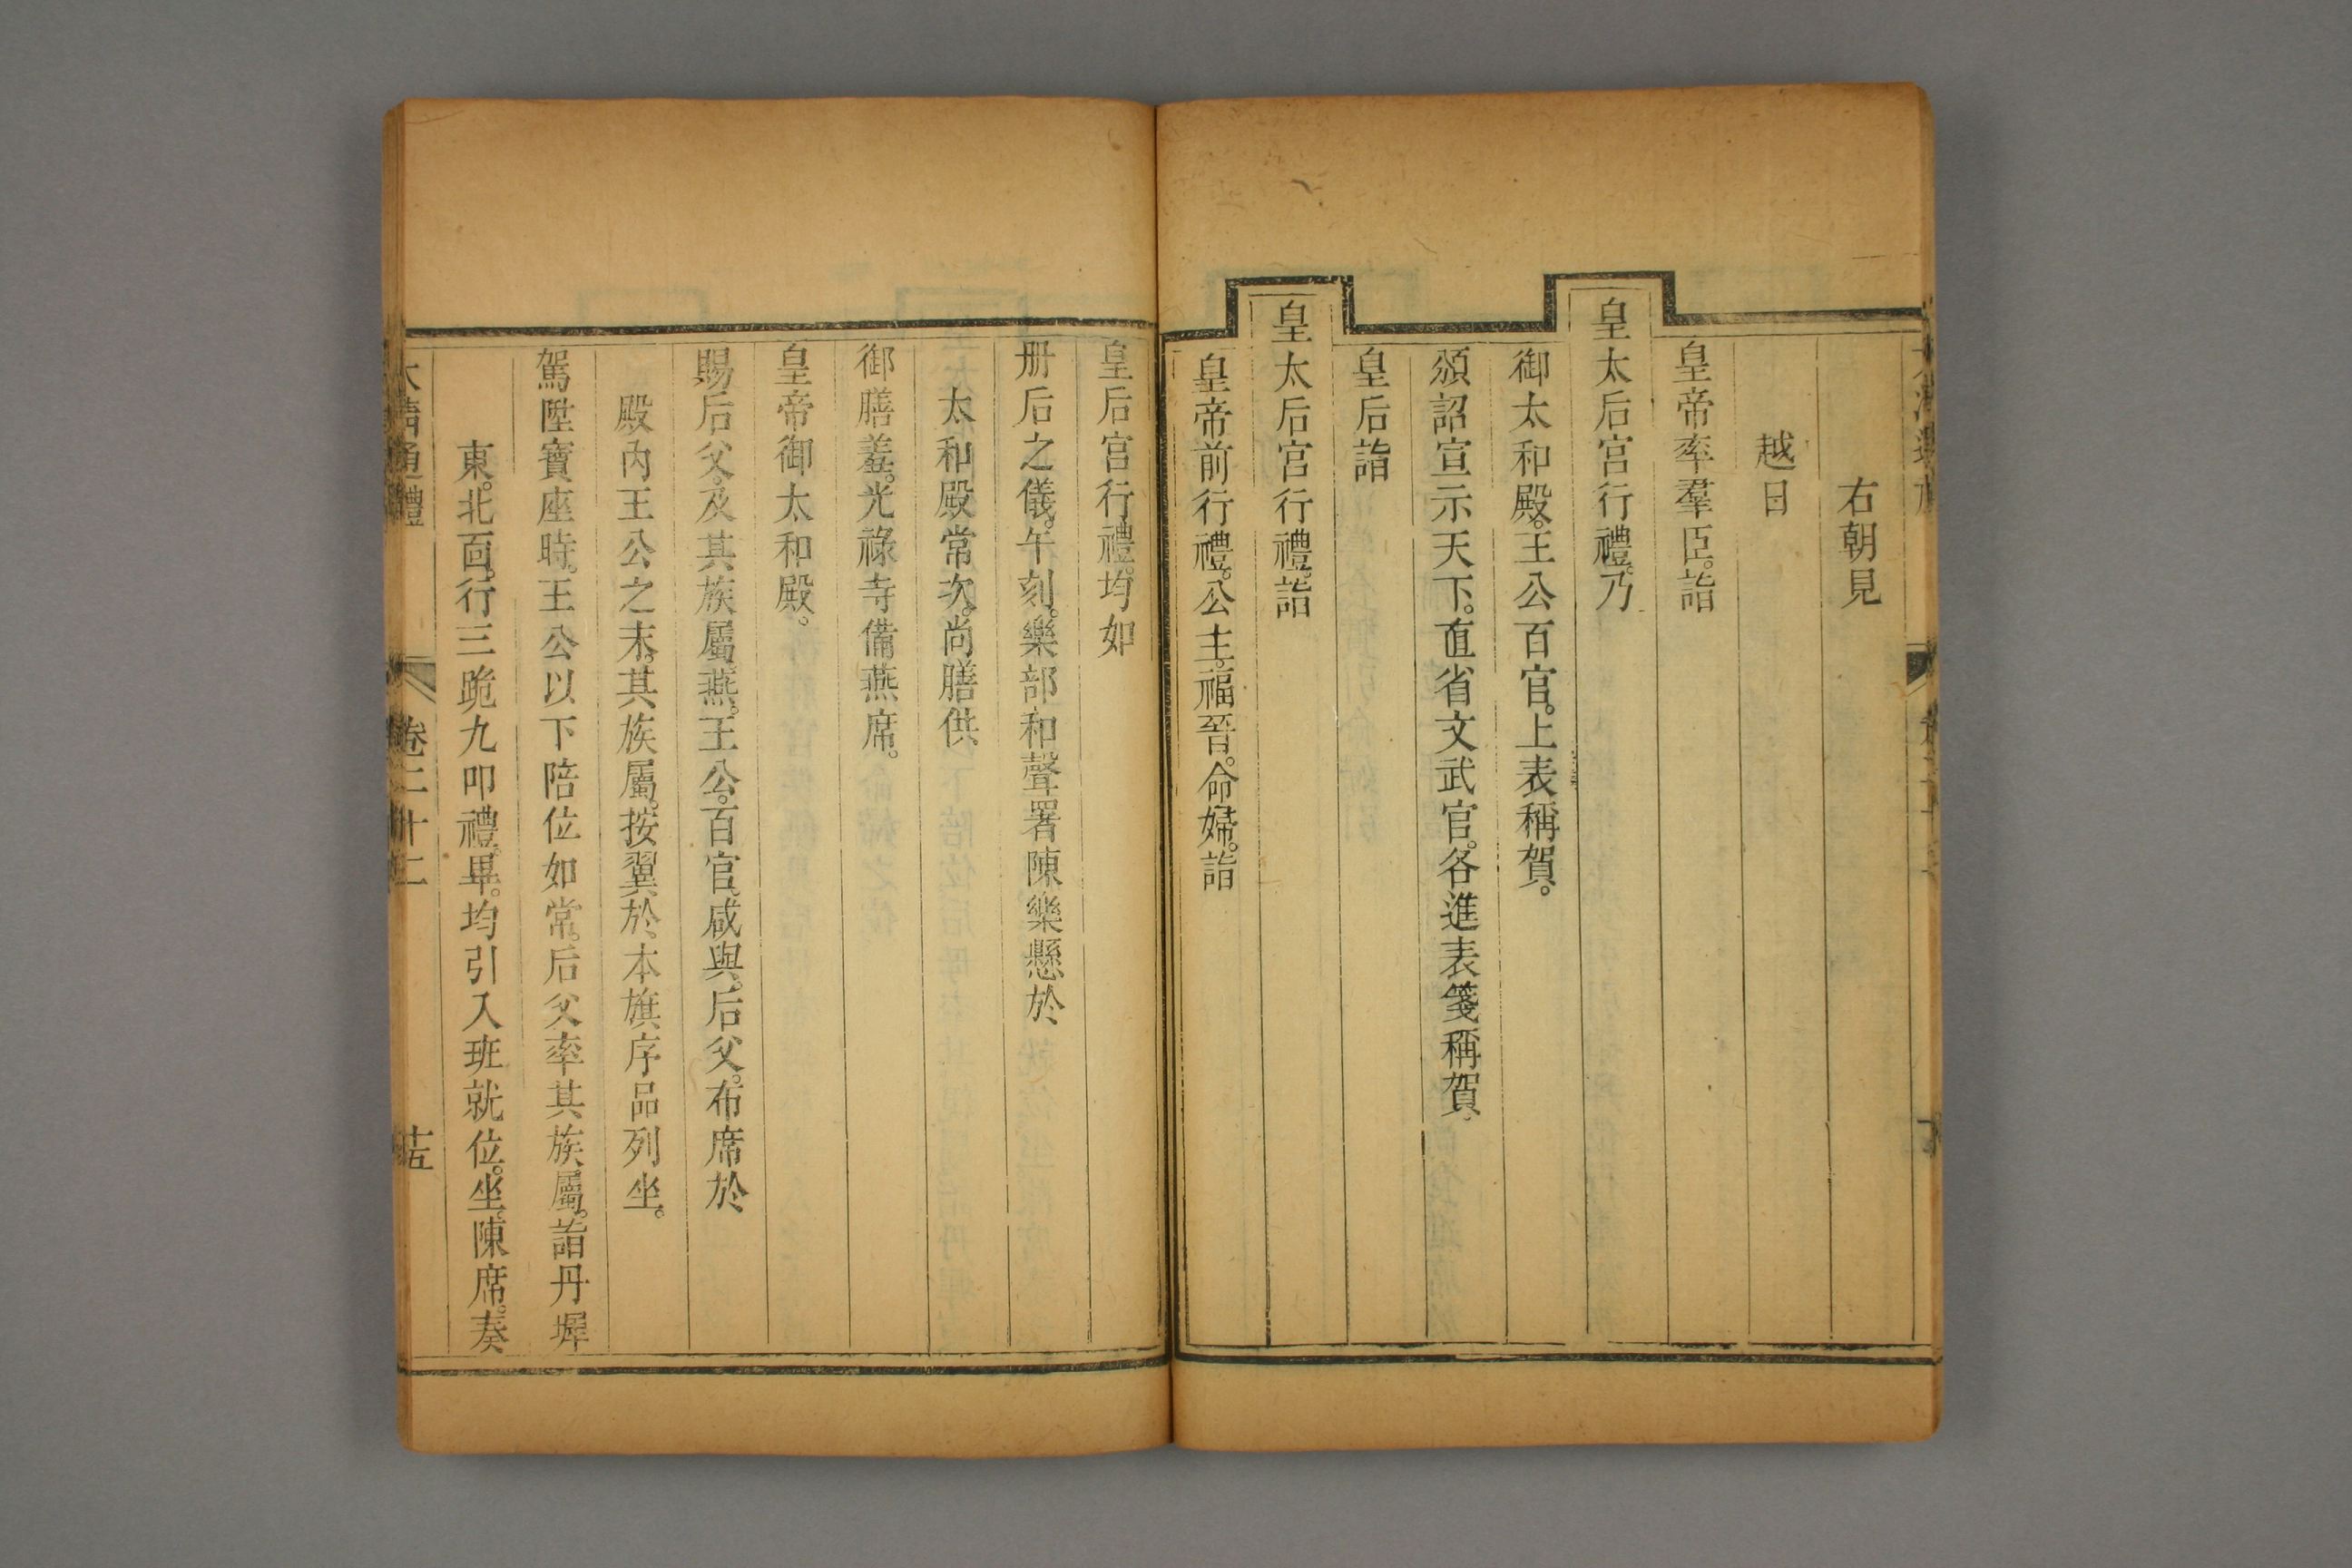 右朝見
越日
皇帝率羣臣。詣
皇太后宮行禮。乃
御太和殿。王公百官。上表稱賀。
頒詔宣示天下。直省文武官。各進表箋稱賀。
皇后詣
皇太后宮行禮。詣
皇帝前行禮。公主。福晉。命婦。詣
皇后宮行禮。均如
册后之儀。午刻。樂部和聲署陳樂懸於
太和殿常次。尚膳供
御膳羞。光祿寺備燕席。
皇帝御太和殿。
賜后父。及其族屬燕。王公。百官。咸與。后父。布席於
殿內王公之末。其族屬。按翼於本旗序品列坐。
駕陞寶座時。王公以下陪位如常。后父率其族屬。詣丹墀
東。北面。行三跪九叩禮。畢。均引入班就位。坐。陳席。奏
大清通禮
卷二十二